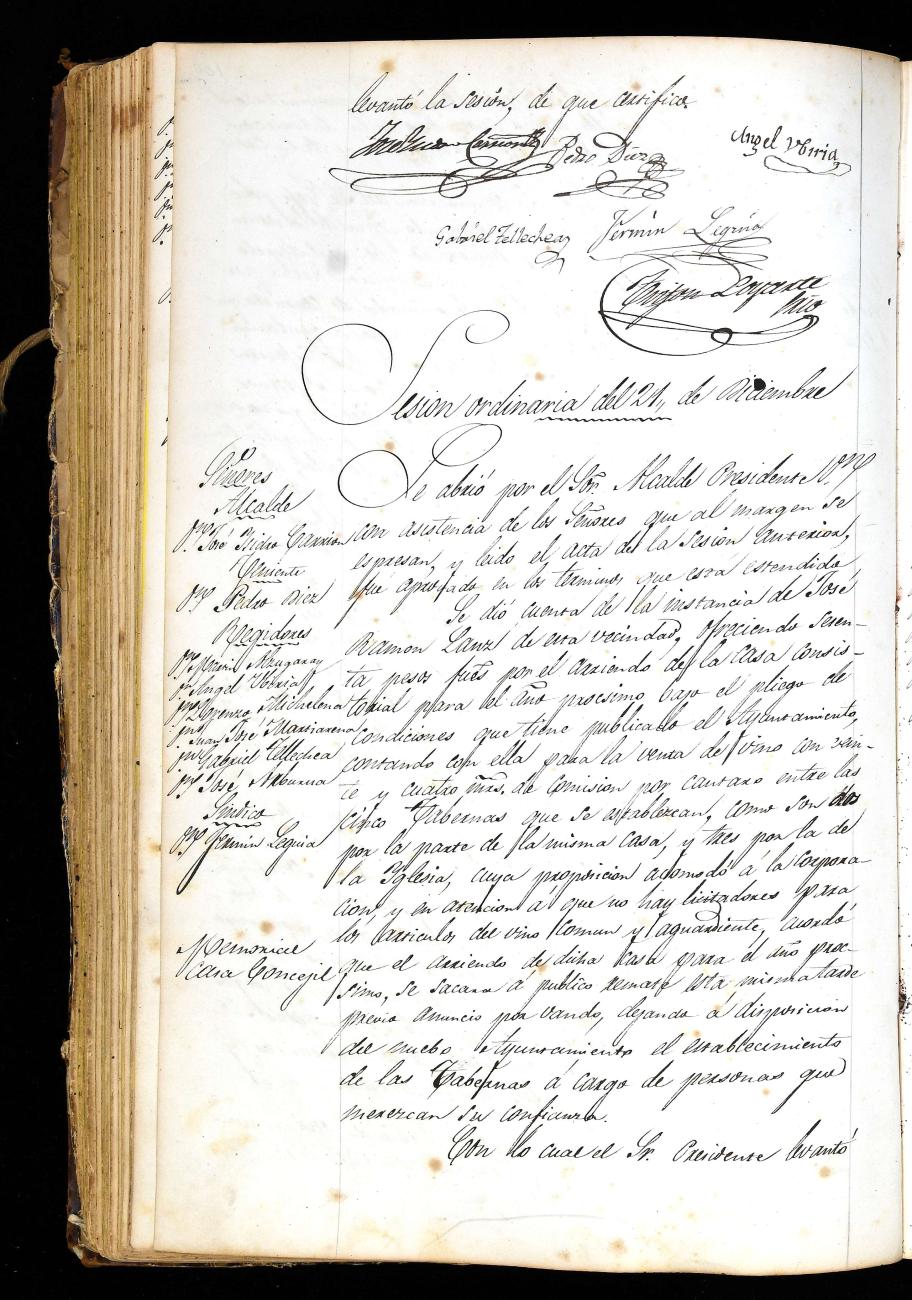 levantó la sesión, de que certifico
Pedro Diez
Angel Ybiria
Gabriel Tellechea
Fermin Leguia
Laparte
Srio
Sesion ordinaria del 21,, de Diciembre
Señores
Alcalde
Dn José Ysidro Carrion
Teniente
Dn Pedro Diez
Regidores
Dn Angel Ybiria
Dn Lorenzo Michelena
Dn Juan José Marisarena
Dn Gabriel Tellechea
Dn José
Sindico
Dn Fermin Leguia
Memorial
Casa Concejil
Se abrió por el Sor. Alcalde Presidente
con asistencia de los Señores que al margen se
espresan, y leido el acta de la Sesion anterior,
fué aprobado en los terminos que está estendida
Se dió cuenta de la instancia de José
Ramon Lanz de esta vecindad, ofreciendo sesen-
ta pesos fues por el arriendo de la casa consis-
torial para el año procsimo, bajo el pliego de
condiciones que tiene publicado el Ayuntamiento,
contando con ella para la venta de vino con vein-
te y cuatro mrs. de Comision por cantaro entre las
cinco Tabernas que se establezcan, como son dos
por la parte de la misma casa, y tres por la de
la Yglesia, cuya proposicion acomodó á la Corpora-
cion, y en atencion á que no hay licitadores para
los articulos del vino comun y aguardiente, acordó
que el arriendo de dicha casa para el año proc-
simo, se sacara á publico remate esta misma tarde
previo anuncio por vando, dejando á disposicion
del nuebo Ayuntamiento el establecimiento
de las Tabernas á cargo de personas que
merezcan su confianza.
Con lo cual el Sr. Presidente levantó